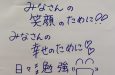 みなさんの
笑顔のために
みなさんの
幸せのために
日々勉強